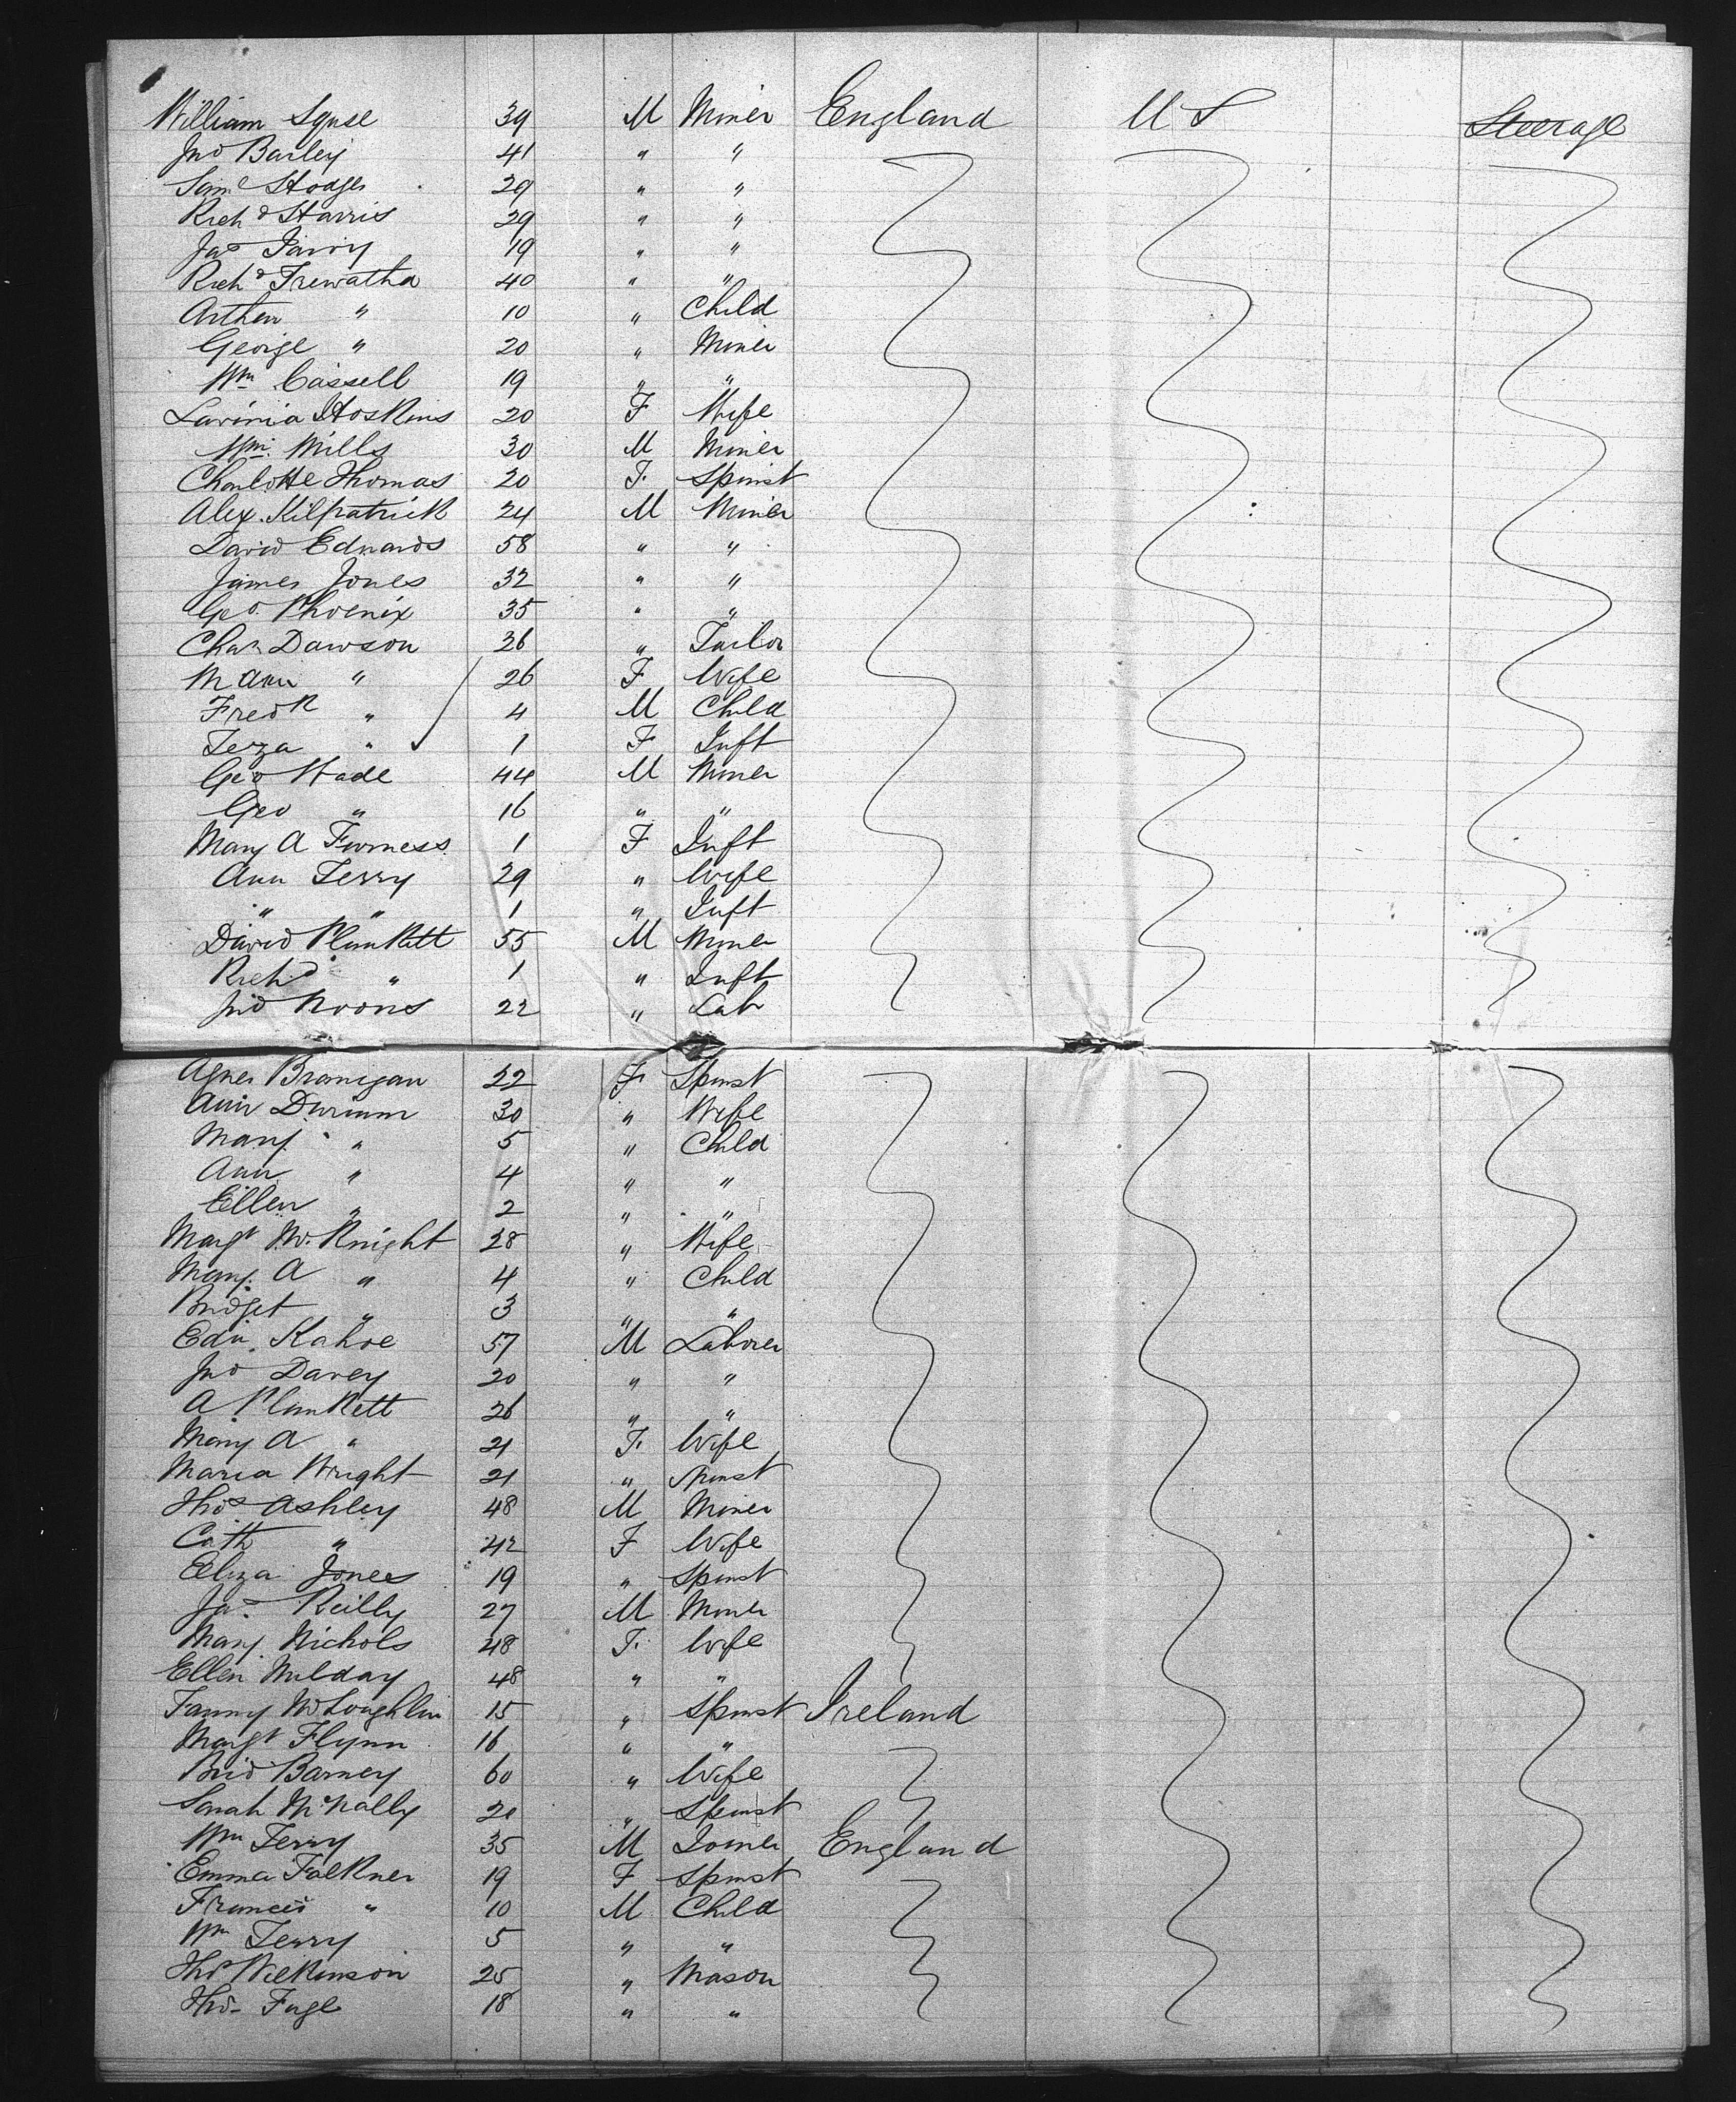 William Squse 39 M Miner England U S Steerage
Jno Barley 41 " "
Saml Hodges 29 " "
Richd Harris 29 " "
Jas Parry 19 " "
Richd Trewatha 40 " "
Arthur " 10 " Child
George " 20 " Miner
Wm Cassell 19 " "
Lavinia Hoskins 20 F Wife
Wm. Mills 30 M Miner
Charlotte Thomas 20 F. Spinst
Alex. Kilpatrick 24 M Miner
David Edwards 58 " "
James Jones 32 " "
Geo. Phoenix 35 " "
Chas Dawson 36 " Tailor
M Ann " 26 F Wife
Fredk " 4 M Child
Terza " 1 F Inft
Geo Wade 44 M Miner
Geo " 16 " "
Mary A Furness 1 F Inft
Ann Terry 29 " Wife
" " 1 " Inft
David Plunkett 55 M Miner
Richd " 1 " Inft
Jno Noons 22 " Lab
Agnes Branigan 22 F Spinst
Ann Durinm 30 " Wife
Mary " 5 " Child
Ann " 4 " "
Ellen " 2 " "
Margt McKnight 28 " Wife
Mary A " 4 " Child
Bridget " 3 " "
Edw. Kahoe 57 M Laborer
Jno Davey 20 " "
A Plunkett 26 " "
Mary A " 21 F. Wife
Maria Wright 21 " Spinst
Thos Ashley 48 M Miner
Cath " 42 F Wife
Eliza Jones 19 " Spinst
Jas Reilly 27 M Miner
Mary Nichols 48 F. Wife
Ellen Mulday 48 " "
Fanny McLoughlin 15 " Spinst Ireland
Margt Flynn 16 " "
Brid Barney 60 " Wife
Sarah McNally 20 " Spinst
Wm Terry 35 M Joiner England
Emma Falkner 19 F Spinst
Francis " 10 M Child
Wm Terry 5 " "
Thos Wilkinson 25 " Mason
Thos Fugl 18 " "